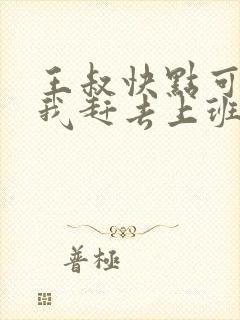 王叔快點可
我赶去上班
普極